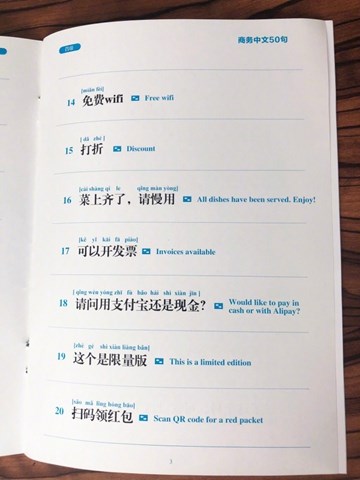 商务中文50句
[miǎn fèi]
14 免费wifi Free wifi
[dǎ zhé]
15 打折 Discount
[cài shàng qí le qǐng màn yòng]
16 菜上齐了，请慢用 All dishes have been served. Enjoy!
[kě yǐ kāi fā piào]
17 可以开发票 Invoices available
[qǐng wèn yòng zhī fù bǎo hái shì xiàn jīn]
18 请问用支付宝还是现金？ Would like to pay in
cash or with Alipay?
[zhè gè shì xiàn liàng bǎn]
19 这个是限量版 This is a limited edition
[sǎo mǎ lǐng hóng bāo]
20 扫码领红包 Scan QR code for a red packet
3